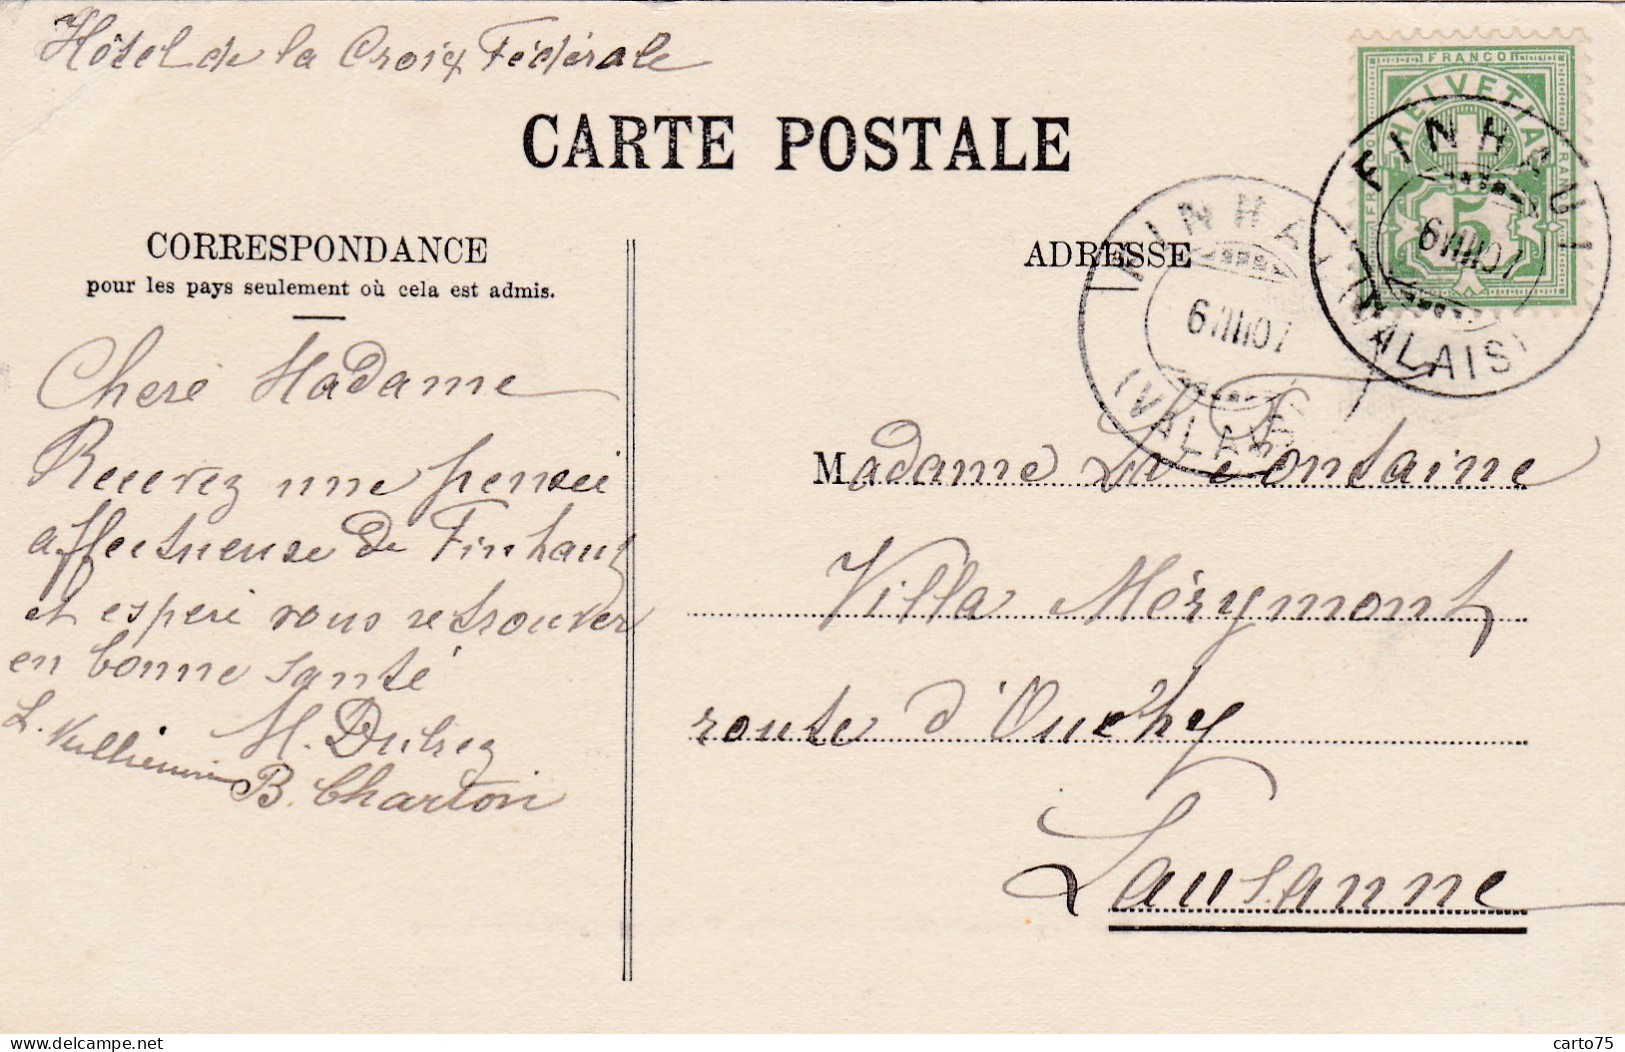 Hôtel de la Croix Fédérale
CARTE POSTALE
CORRESPONDANCE
pour les pays seulement où cela est admis.
Chere Madame
Recevez une pensée
affectueuse de Finhaut
et espere vous retrouver
en bonne santé
L. Vulliemin
M. Dubrez
B. Charton
ADRESSE
Madame La Fontaine
Villa Mérymont
route d'Ouchy
Lausanne
FRANCO
HELVETIA
FRANCO
FRANCO
5
FINHAUT
6 VIII 07
(VALAIS)
FINHAUT
6 VIII 07
(VALAIS)
carto75